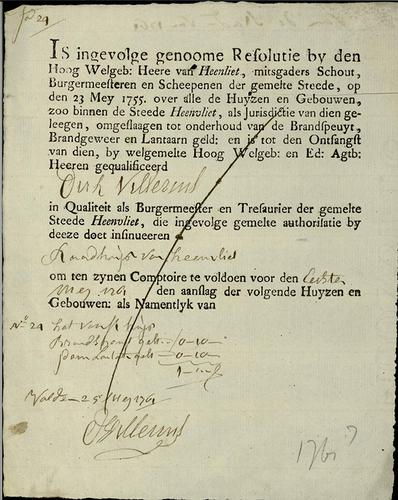 IS ingevolge genoome Resolutie by den
Hoog Welgeb: Heere van Heenvliet, mitsgaders Schout,
Burgermeesteren en Scheepenen der gemelte Steede, op
den 23 Mey 1755. over alle de Huyzen en Gebouwen,
zoo binnen de Steede Heenvliet, als Jurisdictie van dien ge-
leegen, omgeslaagen tot onderhoud van de Brandspeuyt,
Brandgeweer en Lantaarn geld: en is tot den Ontfangst
van dien, by welgemelte Hoog Welgeb: en Ed: Agtb:
Heeren gequalificeerd
Dirk Villerius
in Qualiteit als Burgermeester en Tresaurier der gemelte
Steede Heenvliet, die ingevolge gemelte authorisatie by
deeze doet insinueeren
Raadhuijs van heenvliet
om ten zynen Comptoire te voldoen voor den
Mey 1761 den aanslag der volgende Huyzen en
Gebouwen: als Namentlyk van
No 29 het
0-10-
0-10-
25 Mey 1761
DVillerius
1761